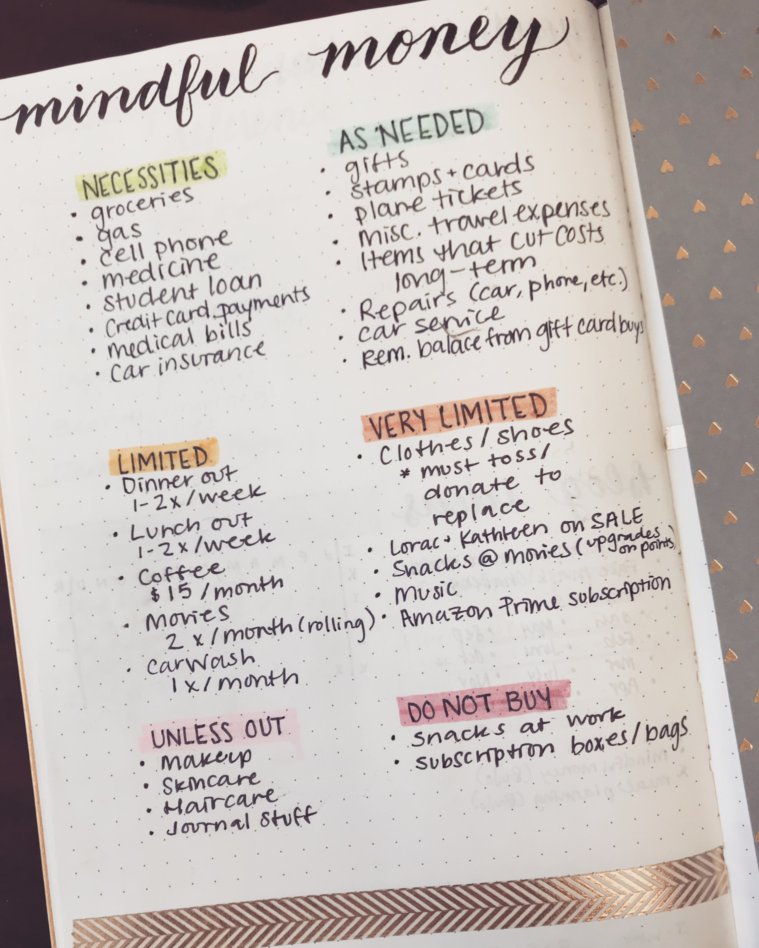 mindful money
NECESSITIES
• groceries
• gas
• cell phone
• medicine
• student loan
• Credit card payments
• medical bills
• car insurance
AS NEEDED
• gifts
• stamps + cards
• plane tickets
• misc. travel expenses
• Items that cut costs
long-term
• Repairs (car, phone, etc.)
• car service
• Rem. balace from gift card buys
LIMITED
• Dinner out
1-2x/week
• Lunch out
1-2x/week
• Coffee
$15/month
• Movies
2x/month (rolling)
• carwash
1x/month
VERY LIMITED
• Clothes/shoes
* must toss/
donate to
replace
• Lorac + Kathleen on SALE
• Snacks @ movies (upgrades
on points)
• Music
• Amazon Prime subscription
UNLESS OUT
• Makeup
• Skincare
• Haircare
• Journal stuff
DO NOT BUY
• snacks at work
• subscription boxes/bags